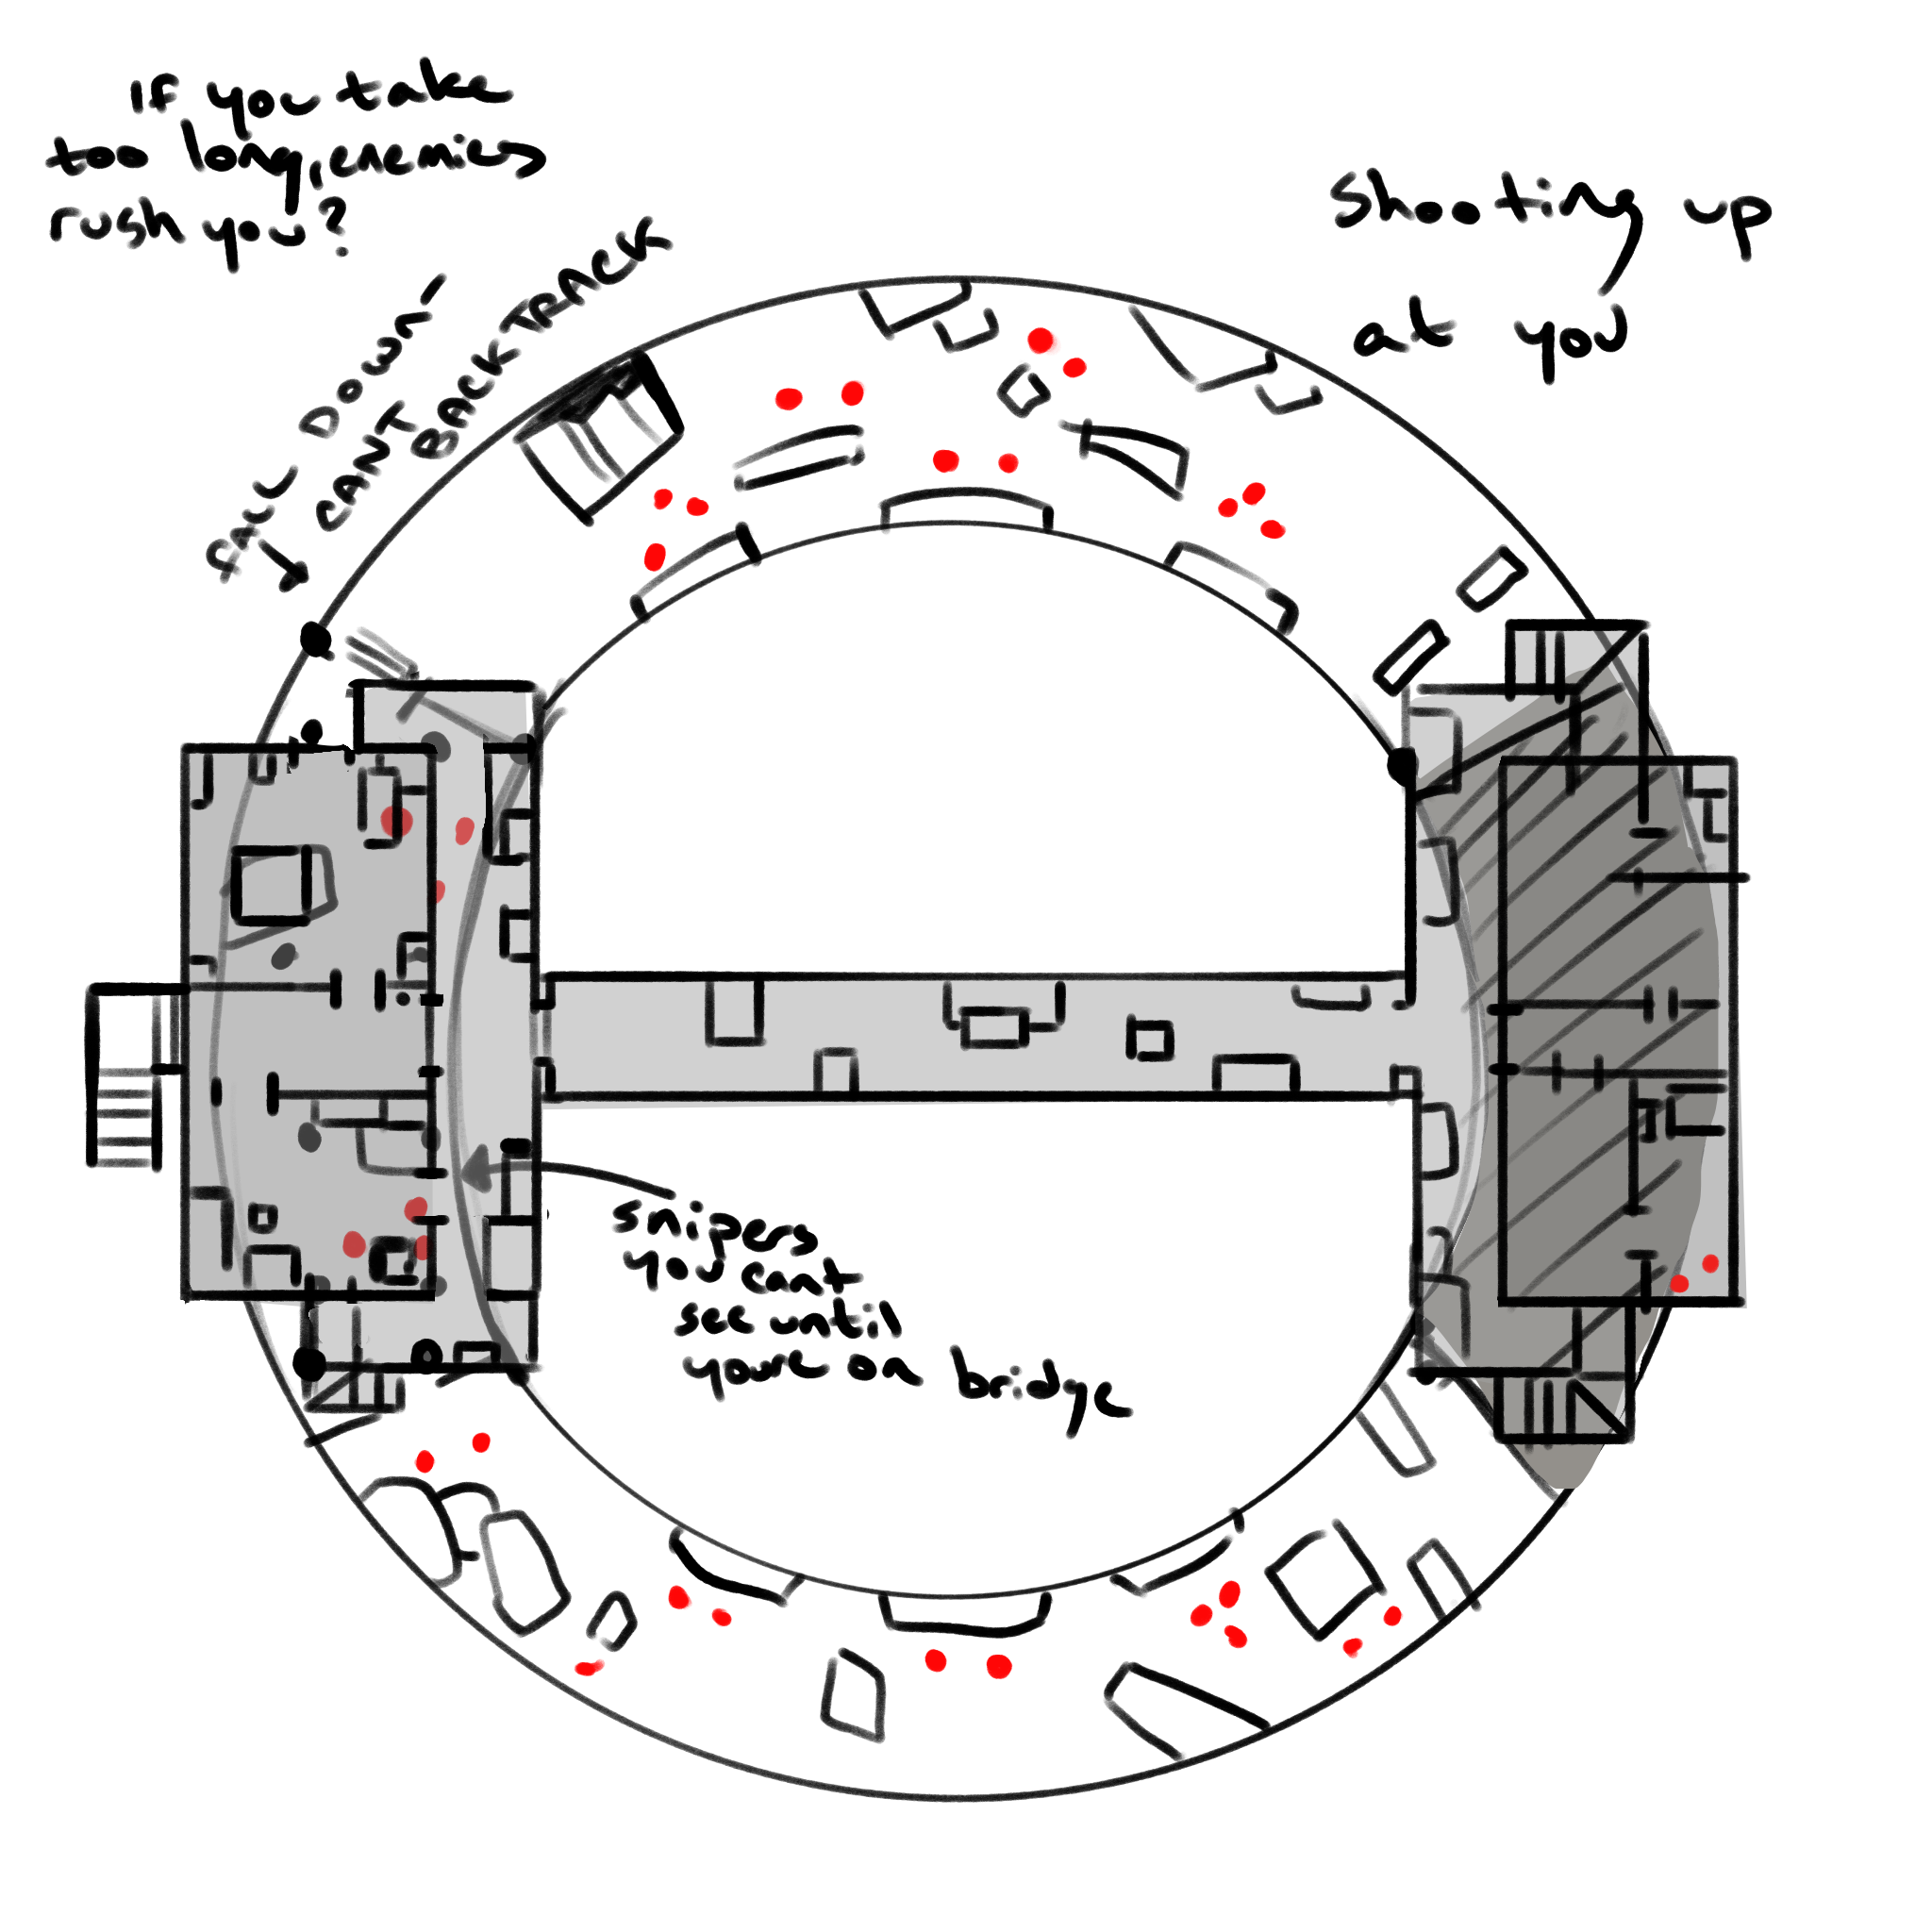 If you take
too long, enemies
rush you?
FALL DOWN -
CANT BACKTRACK
Shooting up
at you
snipers
you cant
see until
youre on bridge